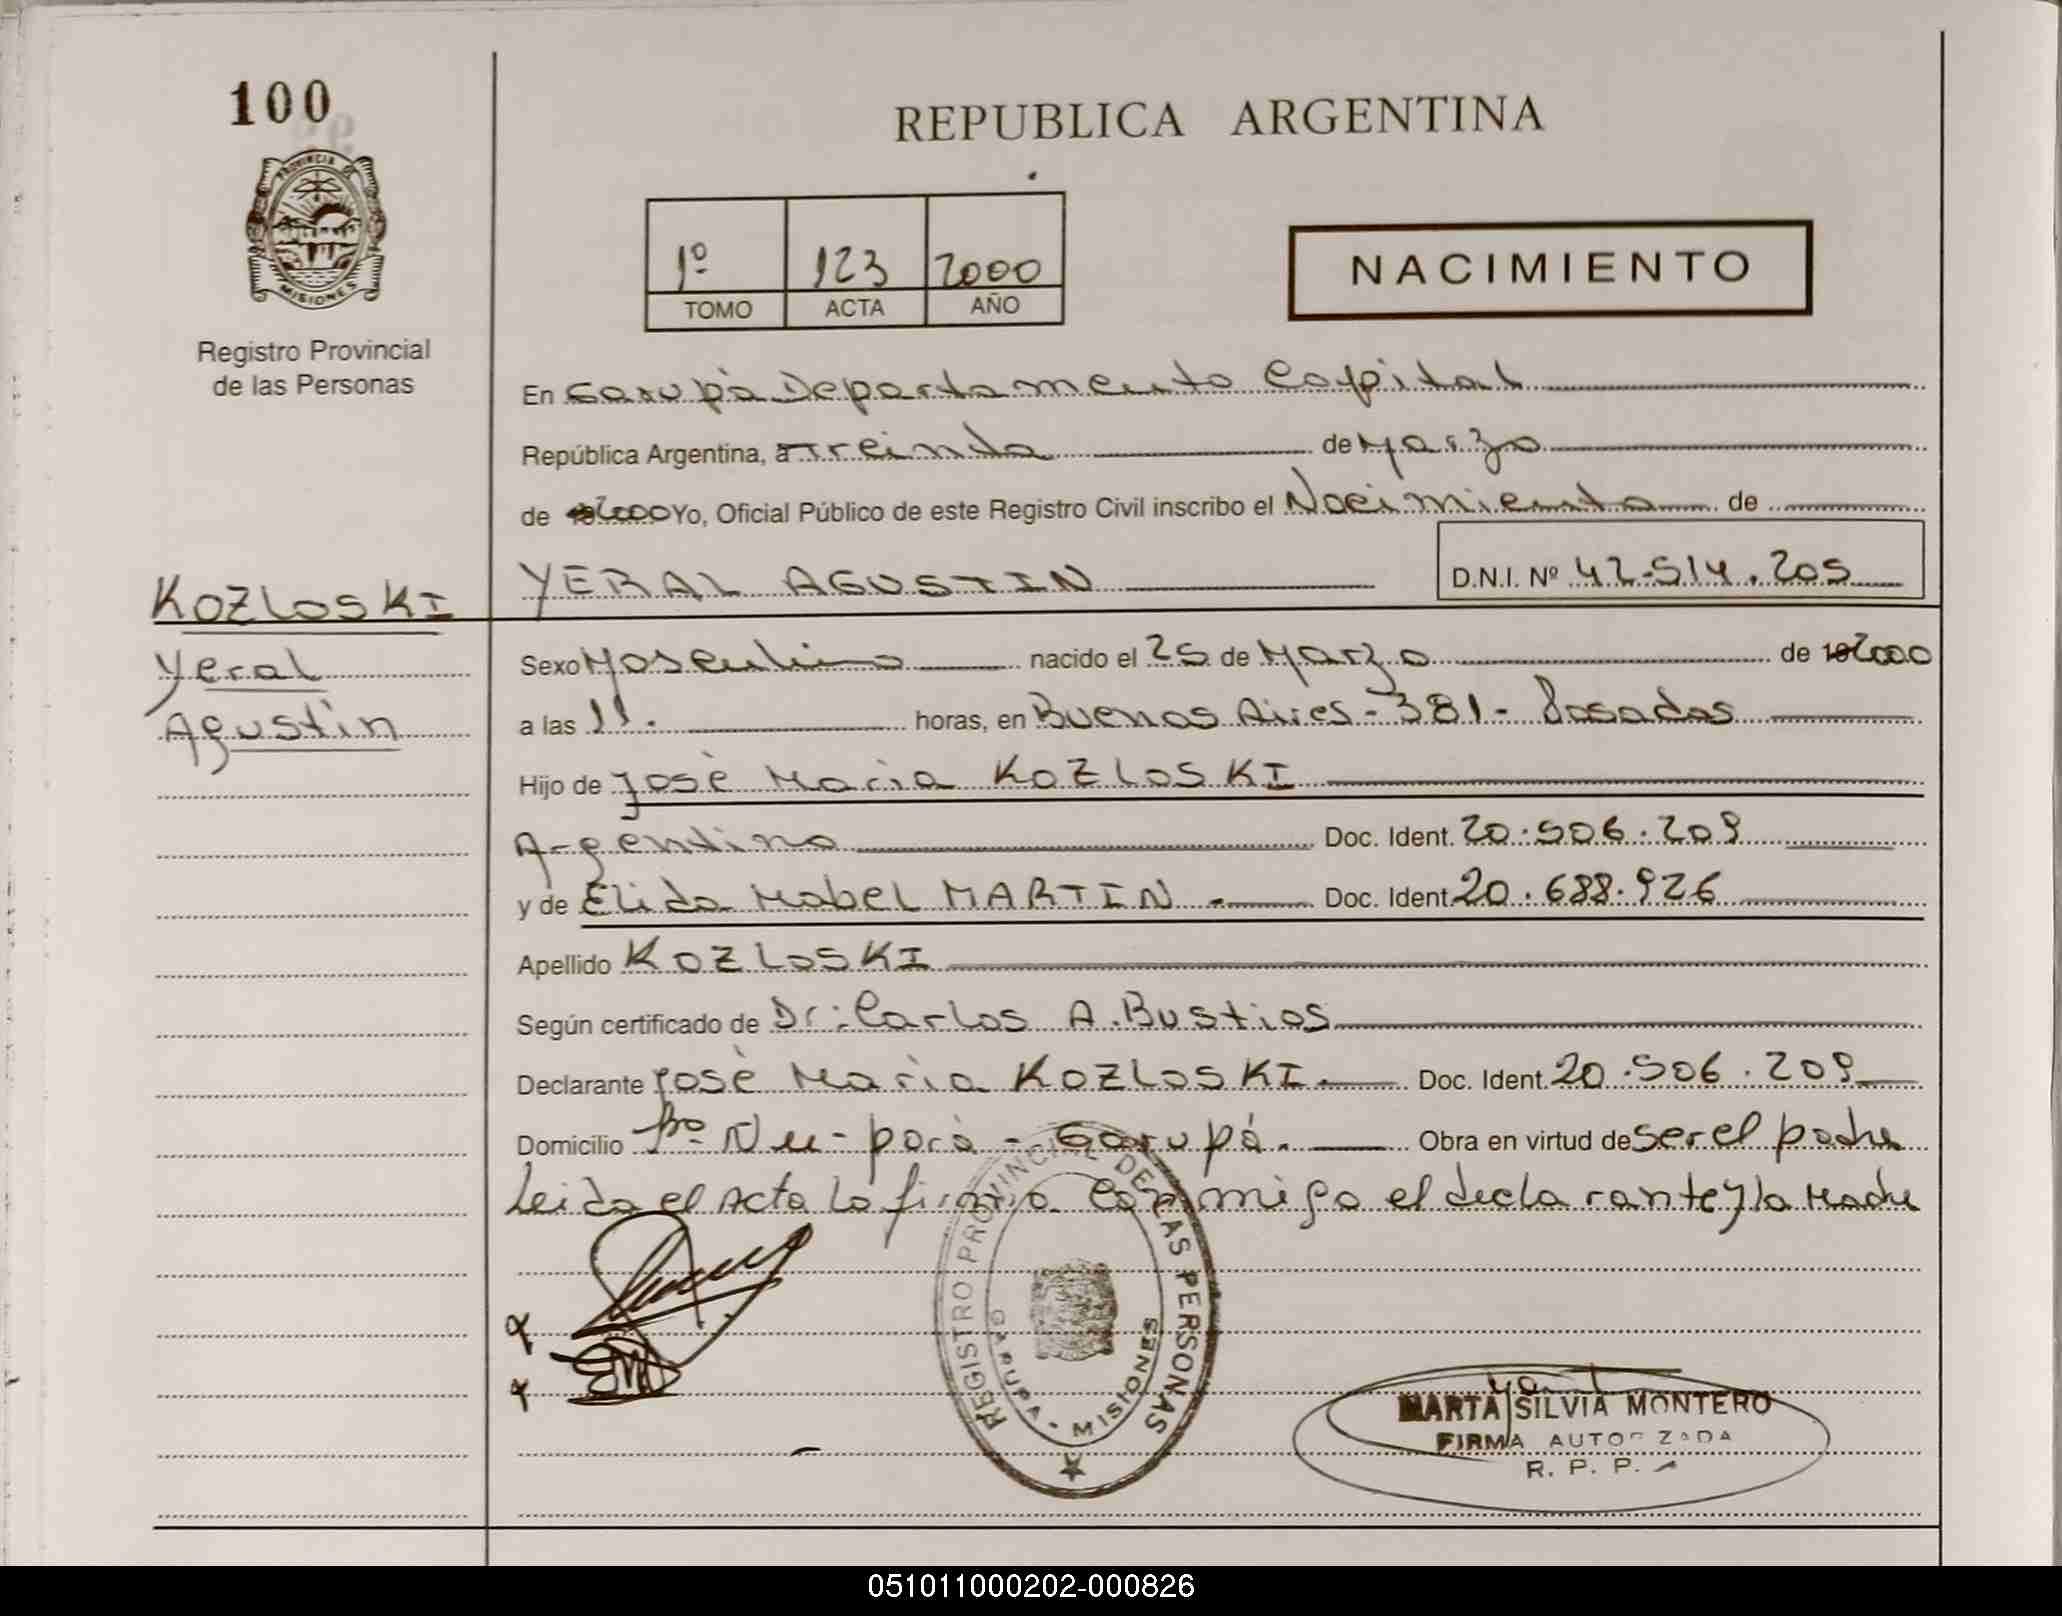 100
REPUBLICA ARGENTINA
PROVINCIA DE
MISIONES
Registro Provincial
de las Personas
1º 123 2000
TOMO ACTA AÑO
NACIMIENTO
En Garupà Departamento Capital
República Argentina, a Treinta de Marzo
de 2000 Yo, Oficial Público de este Registro Civil inscribo el Nacimiento de
YERAL AGUSTIN D.N.I. Nº 42.514.205
KOZLOSKI
Yeral
Agustin
Sexo Masculino nacido el 25 de Marzo de 2000
a las 11. horas, en Buenos Aires - 381 - Posadas
Hijo de Josè Maria KOZLOSKI
Argentino Doc. Ident. 20.506.209
y de Elida Mabel MARTIN. Doc. Ident. 20.688.926
Apellido KOZLOSKI
Según certificado de Dr: Carlos A. Bustios
Declarante Josè Marìa KOZLOSKI. Doc. Ident. 20.506.209
Domicilio Bº Ñu-porà - Garupá. Obra en virtud de ser el padre
Leida el Acta la firma conmigo el declarante y la Madre
REGISTRO PROVINCIAL DE LAS PERSONAS
GARUPA - MISIONES
MARTA SILVIA MONTERO
FIRMA AUTORIZADA
R. P. P.
051011000202-000826